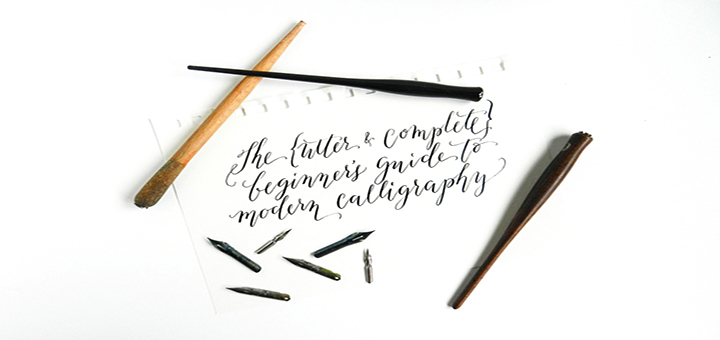 The {utter & complete}
beginner's guide to
modern calligraphy